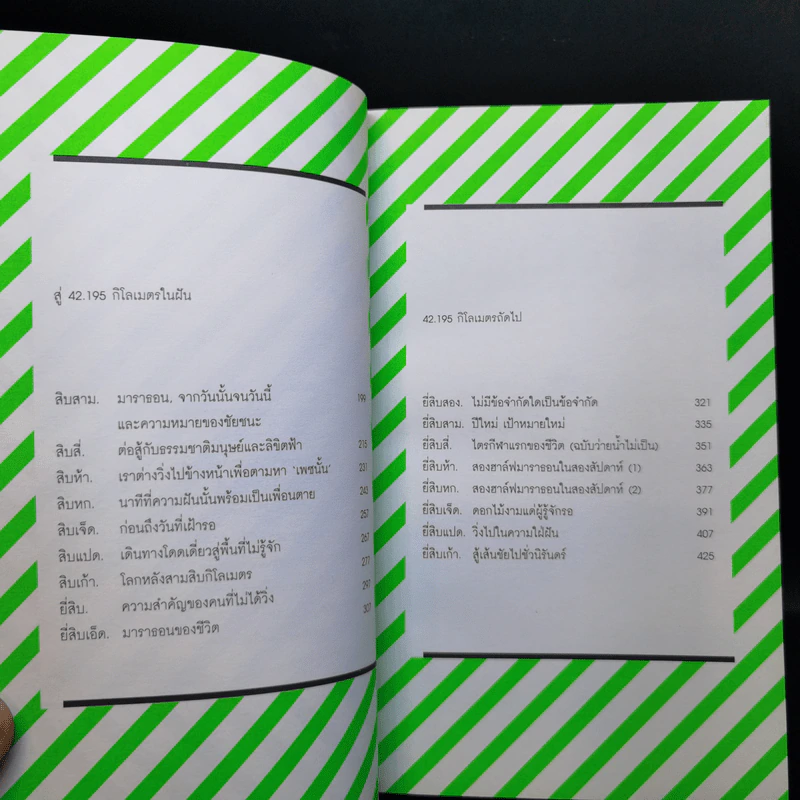 สู่ 42.195 กิโลเมตรในฝัน
สิบสาม. มาราธอน, จากวันนั้นจนวันนี้ 199
และความหมายของชัยชนะ
สิบสี่. ต่อสู้กับธรรมชาติมนุษย์และลิขิตฟ้า 215
สิบห้า. เราต่างวิ่งไปข้างหน้าเพื่อตามหา 'เพซนั้น' 231
สิบหก. นาทีที่ความฝันนั้นพร้อมเป็นเพื่อนตาย 243
สิบเจ็ด. ก่อนถึงวันที่เฝ้ารอ 257
สิบแปด. เดินทางโดดเดี่ยวสู่พื้นที่ไม่รู้จัก 267
สิบเก้า. โลกหลังสามสิบกิโลเมตร 277
ยี่สิบ. ความสำคัญของคนที่ไม่ได้วิ่ง 291
ยี่สิบเอ็ด. มาราธอนของชีวิต 307
42.195 กิโลเมตรถัดไป
ยี่สิบสอง. ไม่มีข้อจำกัดใดเป็นข้อจำกัด 321
ยี่สิบสาม. ปีใหม่ เป้าหมายใหม่ 335
ยี่สิบสี่. ไตรกีฬาแรกของชีวิต (ฉบับว่ายน้ำไม่เป็น) 351
ยี่สิบห้า. สองฮาล์ฟมาราธอนในสองสัปดาห์ (1) 363
ยี่สิบหก. สองฮาล์ฟมาราธอนในสองสัปดาห์ (2) 377
ยี่สิบเจ็ด. ดอกไม้งามแด่ผู้รู้จักรอ 391
ยี่สิบแปด. วิ่งไปในความใฝ่ฝัน 407
ยี่สิบเก้า. สู้เส้นชัยไปชั่วนิรันดร์ 425